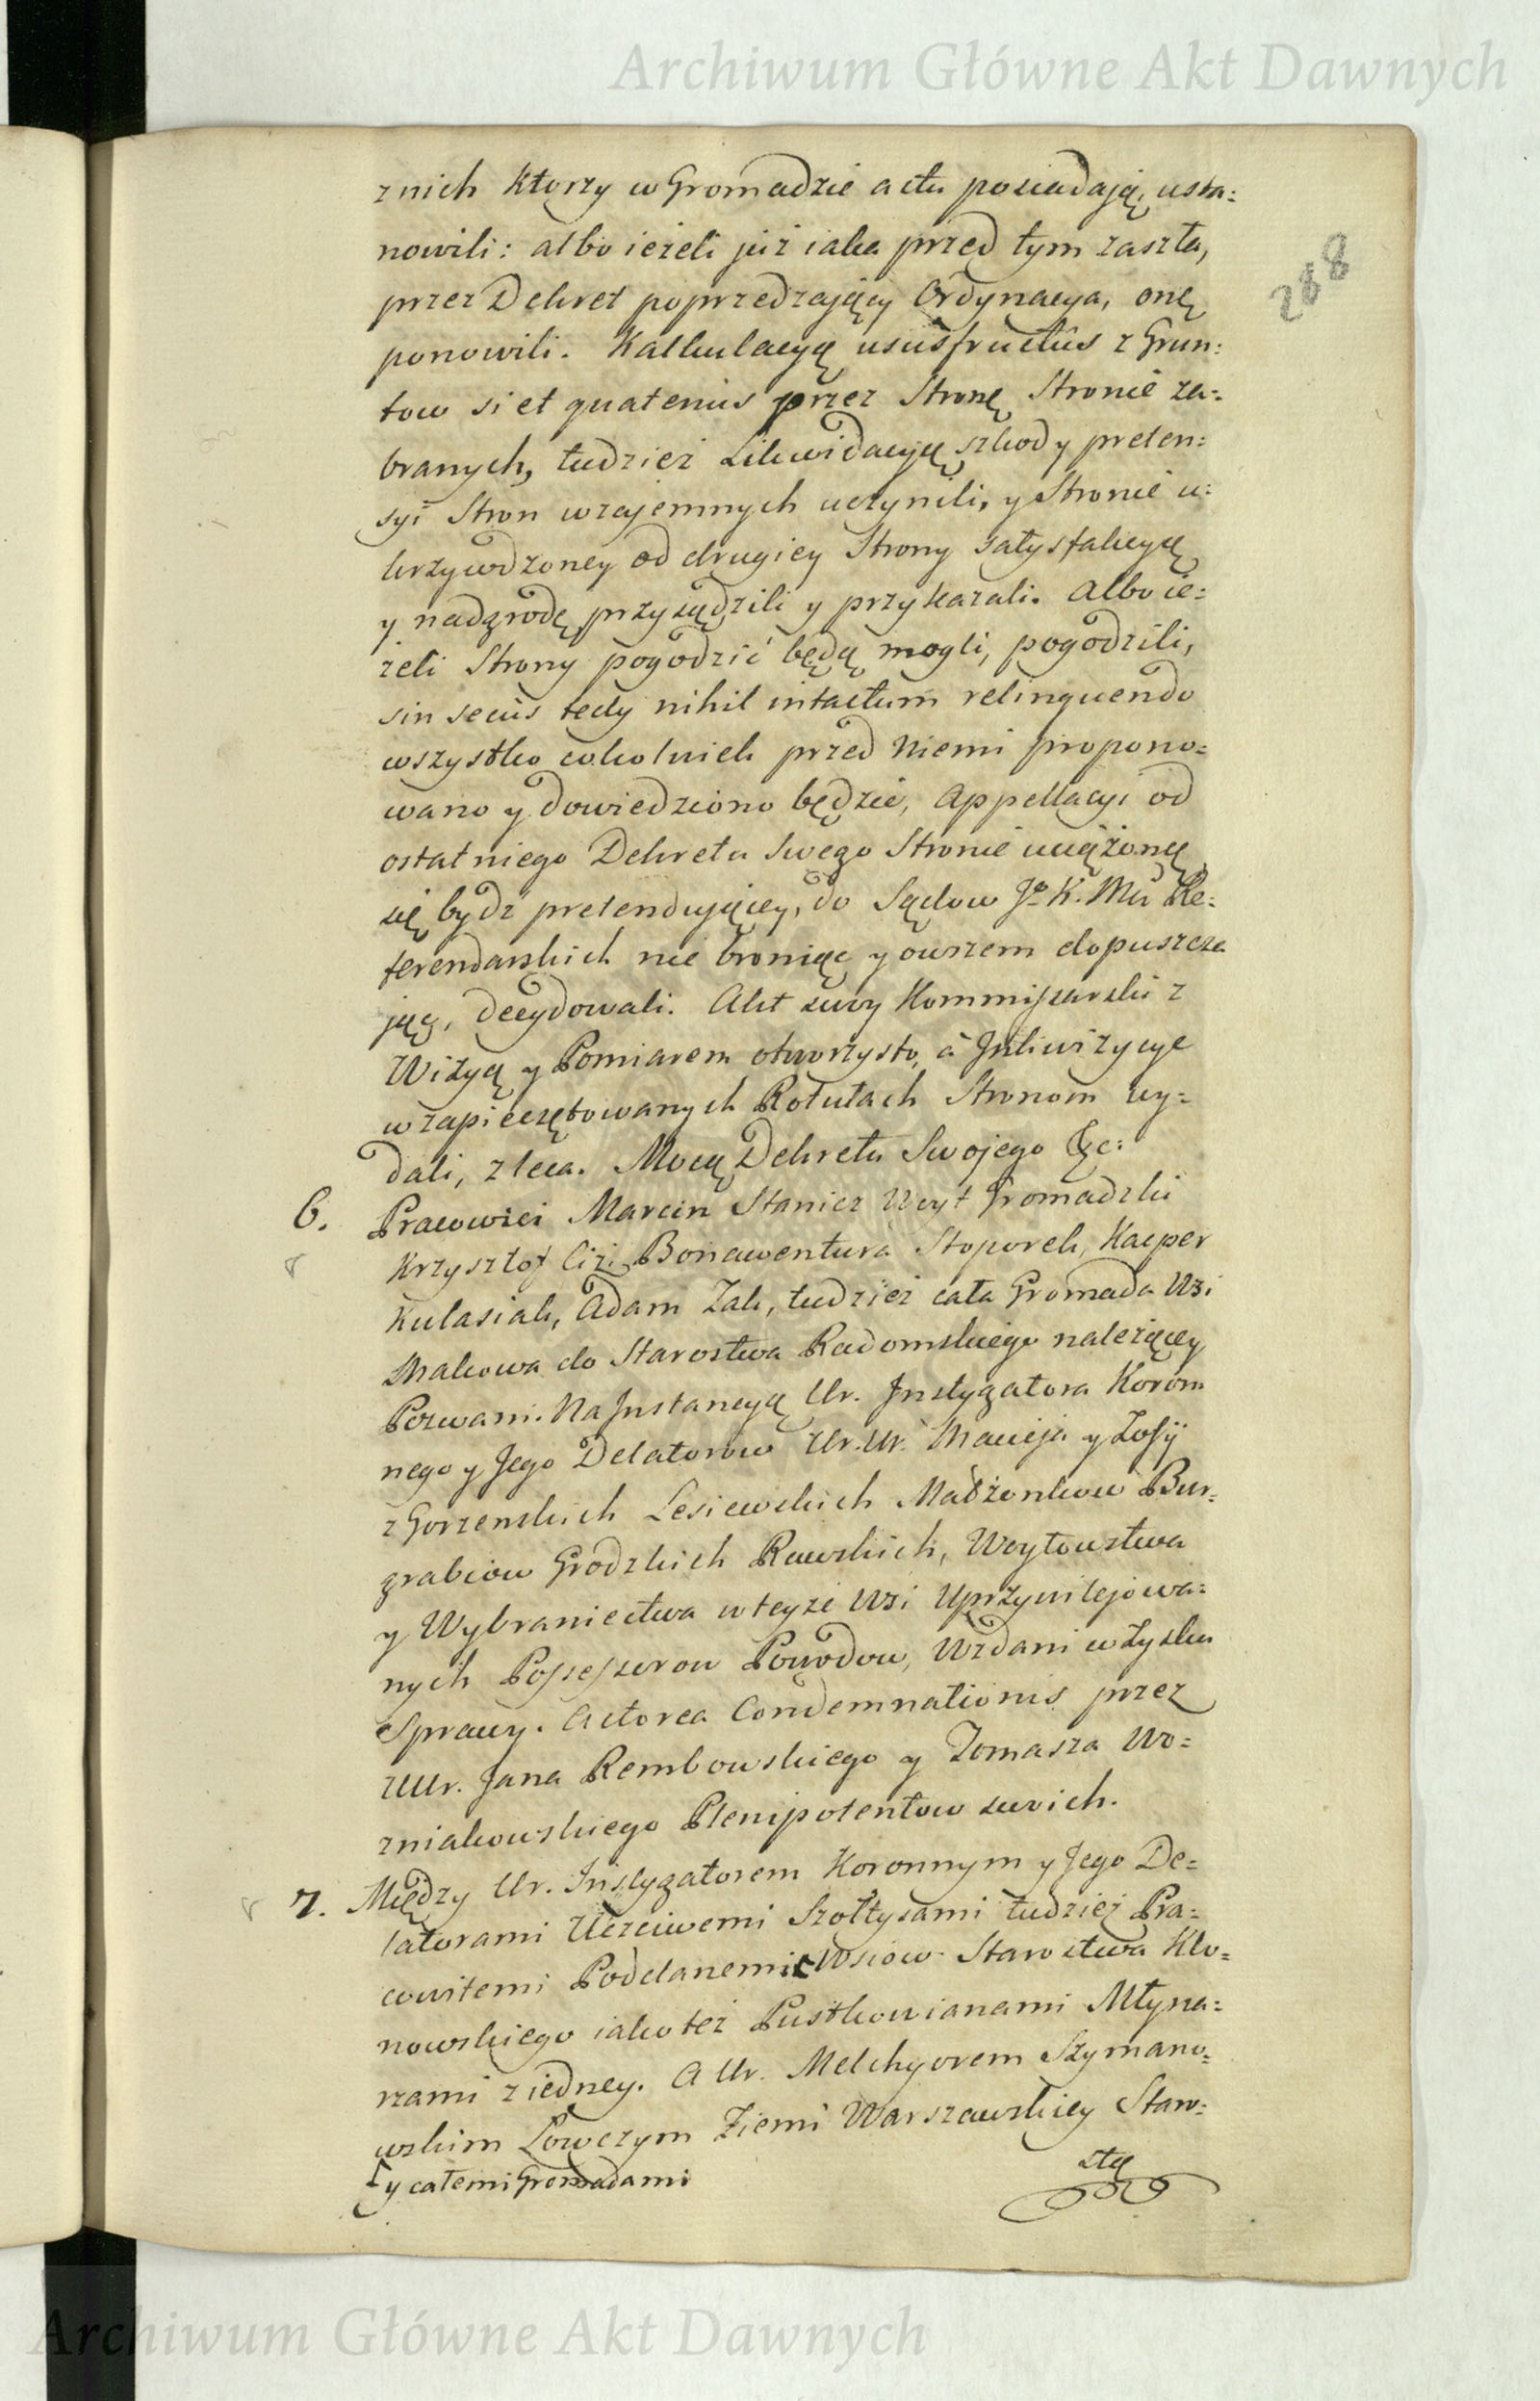 Archiwum Główne Akt Dawnych
288
z nich ktorzy w Gromadzie actu posiadają, usta:
nowili: albo ieżeli już iaka przed tym zaszła,
przez Dekret poprzedzaiący Ordynacya, onę
ponowili. Kalkulacyą ususfructûs z Grun:
tow si et quatenus przez Stronę Stronie za:
branych, tudzież Likwidacyą szkod y preten:
syi Stron wzajemnych uczynili, y Stronie u:
krzywdzoney od drugiey Strony satysfakcyą
y nadgrodę przysądzili y przykazali. Albo ie:
żeli Strony pogodzić będą mogli, pogodzili,
sin secùs tedy nihil intactum relinquendo
wszystko cokolwiek przed Niemi propono:
wano y dowiedziono będzie, Appellacyi od
ostatniego Dekretu Swego Stronie uciążoną
się bydź pretendującey, do Sądow Jº K. Mci Re:
ferendarskich nie broniąc y owszem dopuszcza
jąc, decydowali. Akt swoy Kommissarski z
Wizyą y Pomiarem otworzysto, à Inkwizycye
w zapieczętowanych Rotułach Stronom wy:
dali, zleca. Mocą Dekretu Swojego &c:
6. Pracowici Marcin Stanicz Woyt Gromadzki
Krzysztof Ciż, Bonawentura Stoporek, Kacper
Kulasiak, Adam Żak, tudzież cała Gromada Wsi
Makowa do Starostwa Radomskiego należącey
Pozwani. Na Instancyą Ur. Instygatora Koron
nego y Jego Delatorow Ur. Ur. Macieja y Zofij
z Gorzenskich Lesiewskich Małżonkow Bur:
grabiow Grodzkich Rawskich, Woytowstwa
y Wybraniectwa w teyże Wsi Uprzywilejowa:
nych Possessorow Powodow, Wzdani w Zysku
Sprawy. Actorea Condemnationis przez
UUr. Jana Rembowskiego y Tomasza Wo:
zniakowskiego Plenipotentow swoich.
7. Między Ur. Instygatorem Koronnym y Jego De:
latorami Uczciwemi Szołtysami tudzież Pra:
cowitemi Poddanemi [ Wsiow Starostwa Kło:
nowskiego iako też Pustkowianami Młyna:
rzami z iedney. A Ur. Melchyorem Szymano:
wskim Łowczym Ziemi Warszawskiey Staro:
[ y całemi Gromadami
stą
Archiwum Główne Akt Dawnych